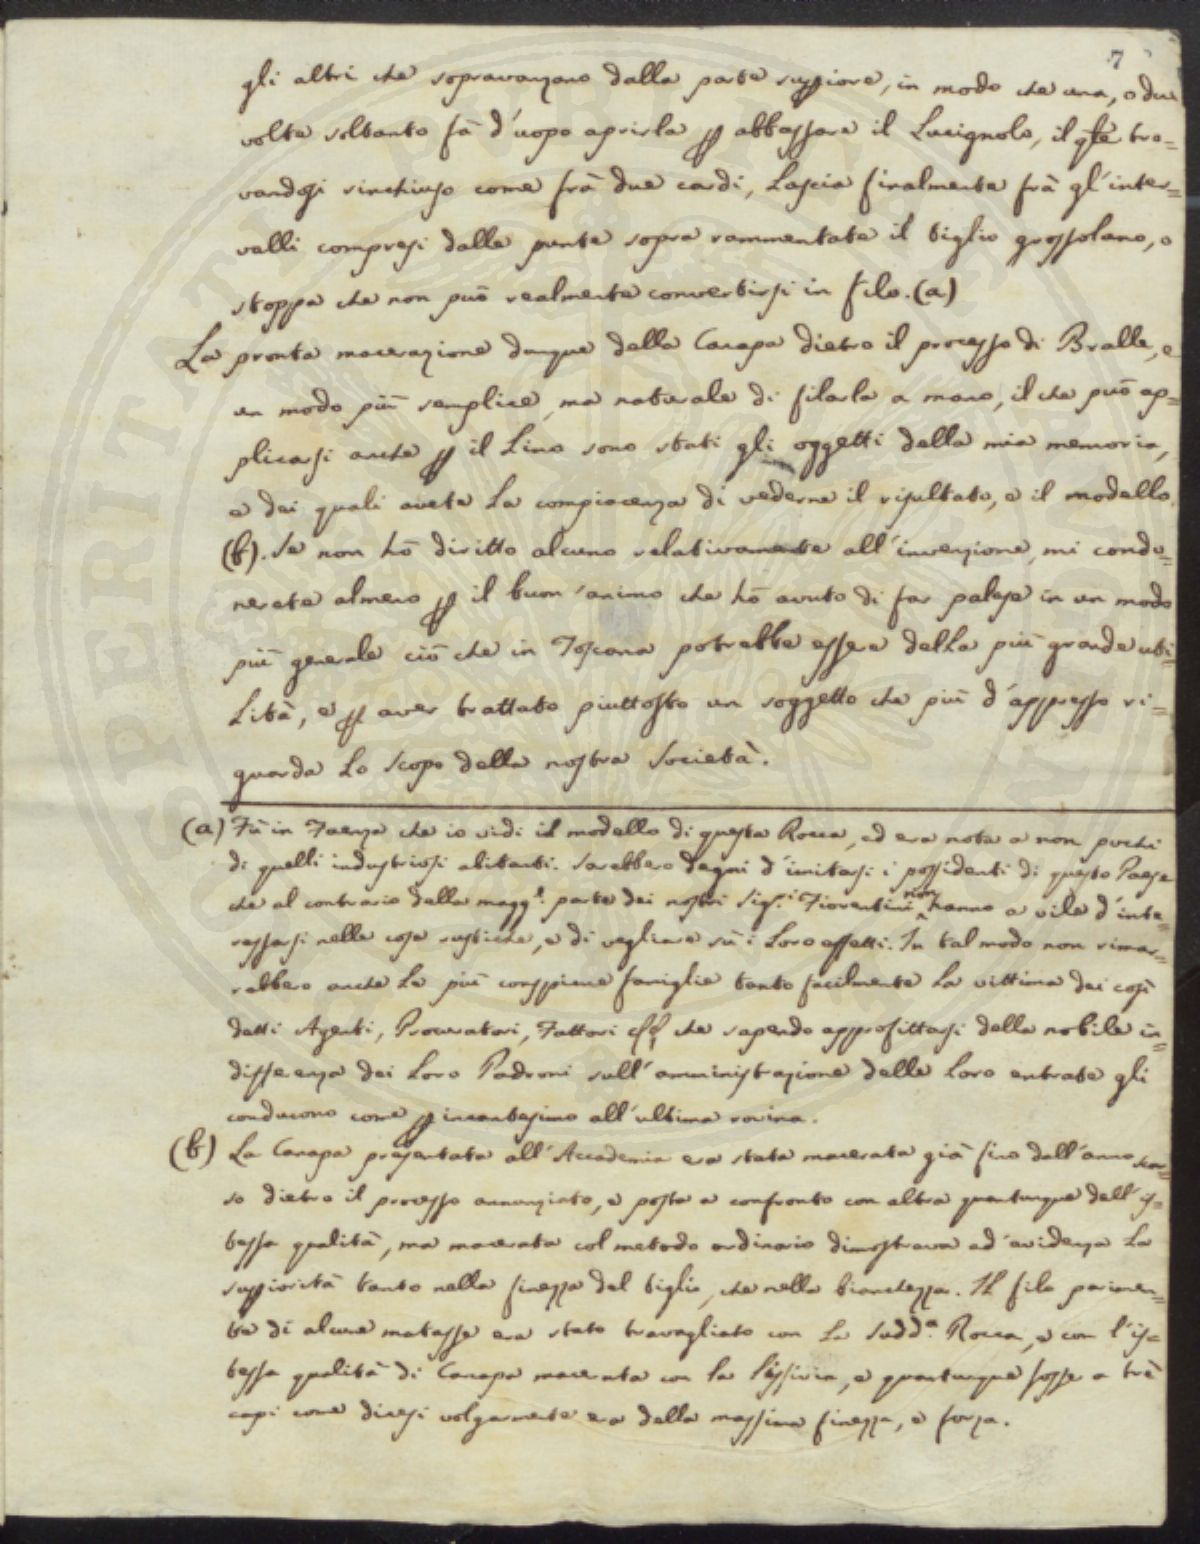 7
gli altri che sopravanzano dalla parte suppiore, in modo che una, o due
volte soltanto fà d'uopo aprirla p abbassare il Lucignolo, il qle tro=
vandosi rinchiuso come frà due cardi, Lascia finalmente frà gl'inter=
valli compresi dalle punte sopra rammentate il tiglio grossolano, o
stoppa che non può realmente convertirsi in filo. (a)
La pronta macerazione dunque della Canapa dietro il processo di Bralle, e
un modo più semplice, ma naturale di filarla a mano, il che può ap=
plicarsi anche p il Lino sono stati gli oggetti della mia memoria,
e dei quali avete La compiacenza di vederne il risultato, e il modello
(b). Se non hò diritto alcuno relativamente all'invenzione, mi condo=
nerete almeno p il buon'animo che hò avuto di far palese in un modo
più generale ciò che in Toscana potrebbe essere della più grande uti=
Lità, e p aver trattato piuttosto un soggetto che più d'appresso ri=
guarda Lo Scopo della nostra Società.
(a) Fù in Faenza che io vidi il modello di questa Rocca, ed era nota a non pochi
di quelli industriosi abitanti. Sarebbero degni d'imitarsi i possidenti di questo Paese
che al contrario della magg.e parte dei nostri Sig.i Fiorentini non hanno a vile d'inte=
ressarsi nelle cose rustiche, e di vegliare sù i Loro affetti. In tal modo non rimar=
rebbero anche Le più conspicue famiglie tanto facilmente La vittima dei così
detti Agenti, Procuratori, Fattori che sapendo approfittarsi della nobile in=
differenza dei Loro Padroni sull'amministrazione delle Loro entrate gli
conducono come p incantesimo all'ultima rovina.
(b) La Canapa presentata all'Accademia era stata macerata già fino dall'anno scor=
so dietro il processo annunziato, e posta a confronto con altra quantunque dell'is=
tessa qualità, ma macerata col metodo ordinario dimostrava ad'evidenza La
suppiorità tanto nella finezza del tiglio, che nella bianchezza. Il filo parimen=
te di alcune matasse era stato travagliato con La Sudd.a Rocca, e con l'is=
tessa qualità di Canapa macerata con la lissivia, e quantunque fosse a trè
capi come dicesi volgarmente era della massima finezza, e forza.